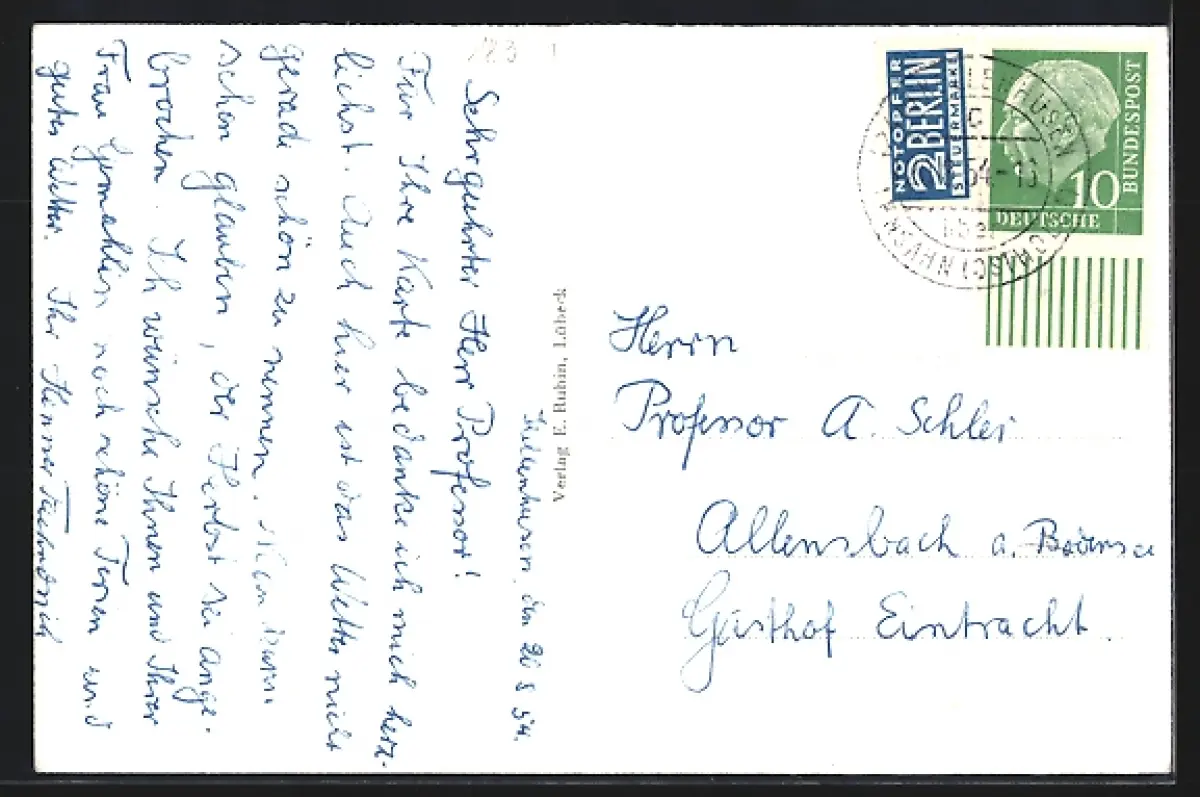 Hillenhusen, den 20 8 54.
Sehrgeehrter Herr Professor!
Für Ihre Karte bedanke ich mich herz-
lichst. Auch hier ist das Wetter nicht
gerade schön zu nennen. Man kann
schon glauben, der Herbst sei ange-
brochen. Ich wünsche Ihnen und Ihrer
Frau Gemahlin noch schöne Ferien und
gutes Wetter. Ihr
Verlag E. Rubin, Lübeck
NOTOPFER
2 BERLIN
STEUERMARKE
10
DEUTSCHE
BUNDESPOST
Herrn
Professor A. Schler
Allensbach a. Bodensee
Gasthof Eintracht.